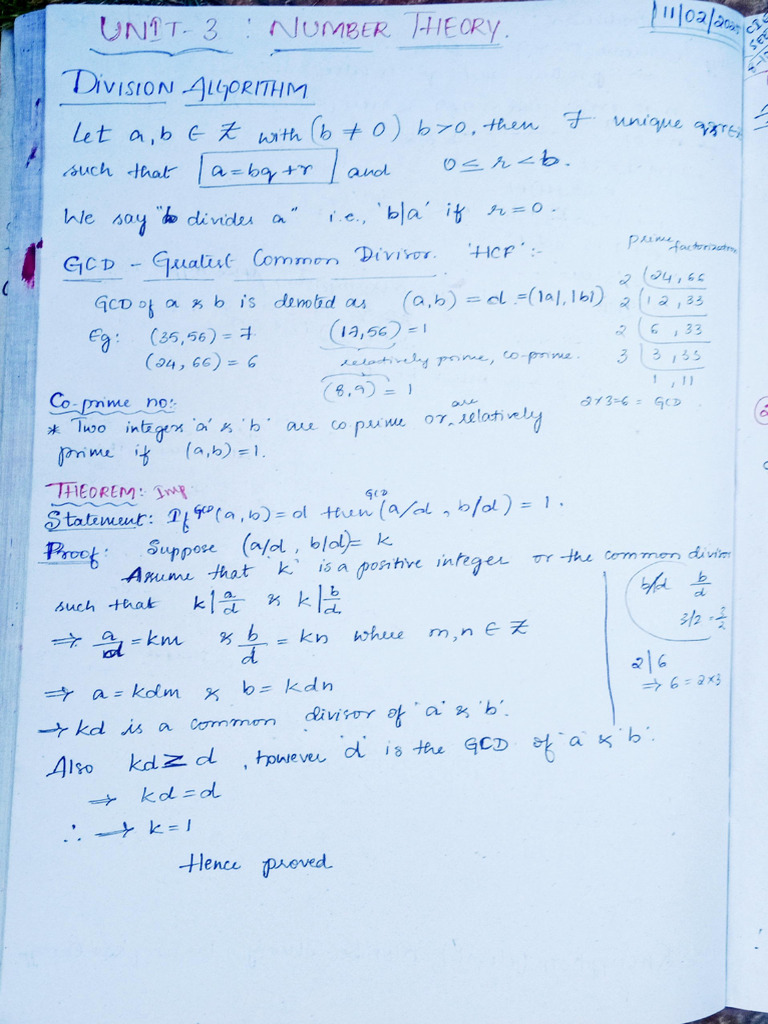 11/02/202
UNIT-3 : NUMBER THEORY.
DIVISION ALGORITHM
Let a, b ∈ Z with (b ≠ 0) b>0, then ∃ unique q, r ∈
such that a = bq + r and 0 ≤ r < b.
We say "b divides a" i.e., 'b|a' if r = 0.
GCD - Greatest Common Divisor. 'HCF' :-
prime factorization
GCD of a & b is denoted as (a,b) = d = (|a|, |b|)
Eg: (35,56) = 7 (17,56) = 1
(24, 66) = 6 relatively prime, co-prime.
(8,9) = 1
2 24, 66
2 12, 33
2 6, 33
3 3, 33
1, 11
2x3=6 = GCD
Co-prime no:-
* Two integers 'a' & 'b' are co prime or are relatively
prime if (a,b) = 1.
THEOREM: Imp
Statement: If GCD (a,b) = d then GCD (a/d, b/d) = 1.
Proof: Suppose (a/d, b/d) = k
Assume that 'k' is a positive integer or the common divisor
such that k|a/d & k|b/d
⇒ a/d = km & b/d = kn where m, n ∈ Z
⇒ a = kdm & b = kdn
→ kd is a common divisor of 'a' & 'b'.
Also kd ≥ d, however 'd' is the GCD of 'a' & 'b'.
⇒ kd = d
∴ → k = 1
Hence proved
b/d b/d
3/2 = 3/2
2|6
⇒ 6 = 2x3